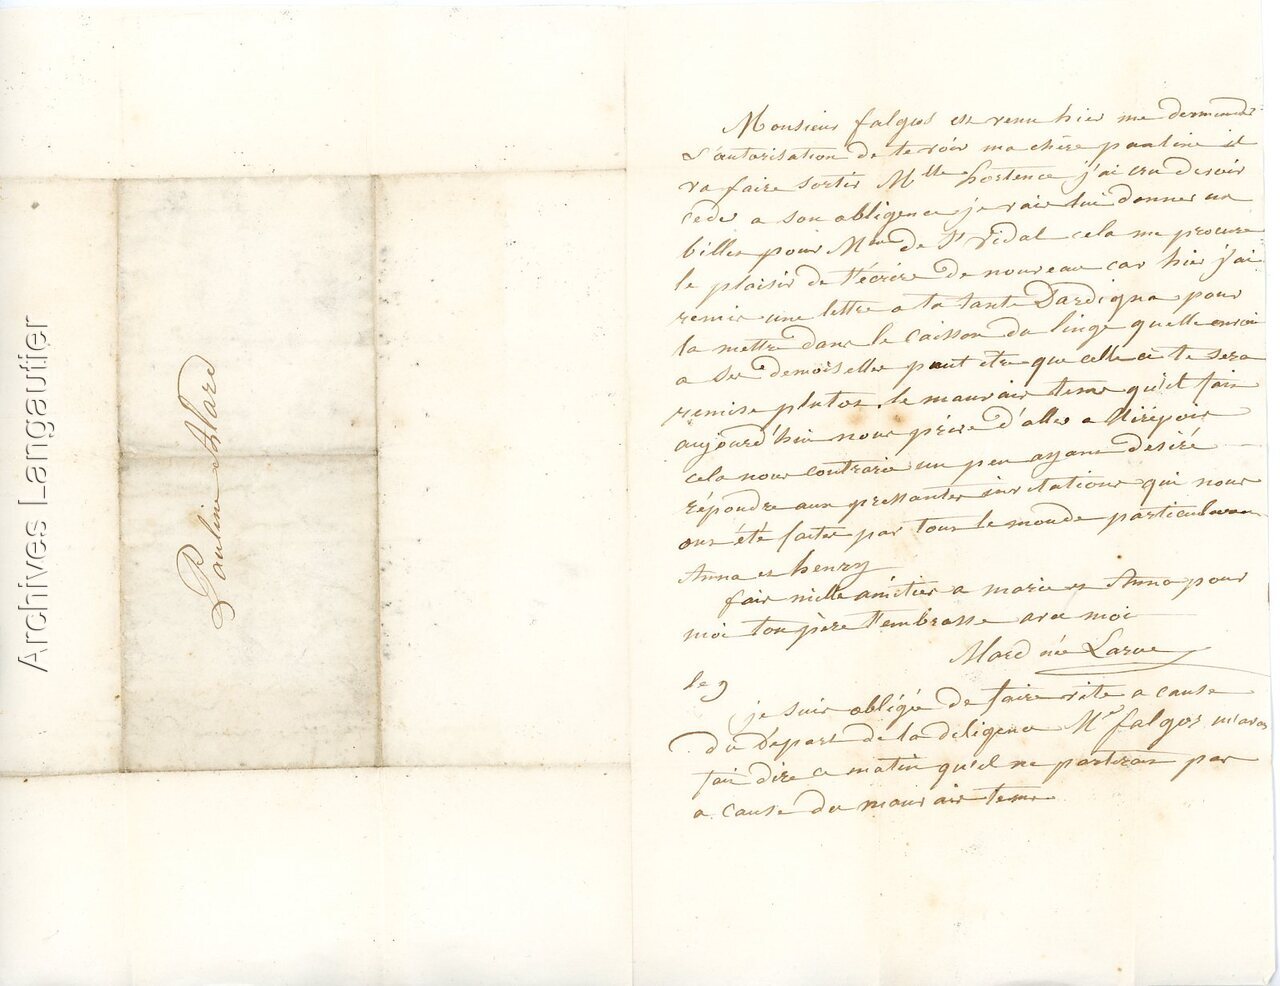 Archives Langautier
Pauline Alard
Monsieur falgos est venu hier me demander
l'autorisation de te voir ma chère pauline il
va faire sortir Mlle hortence j'ai cru devoir
ceder a son obligence je vais lui donner un
billet pour Mme de St Vidal cela me procure
le plaisir de t'écrire de nouveau car hier j'ai
remis une lettre a ta tante Dardigna pour
la mettre dans le caisson du linge quelle envoi
a ses demoiselles peut etre que celle ci te sera
remise plutot. le mauvais tems qu'il fait
aujourd'hui nous prive d'aller a Mirépoix
cela nous contrarie un peu ayant desiré
répondre aux pressantes invitations qui nous
ont été faites par tout le monde particulierement
Anna et henry
fait mille amitiés a marie et Anna pour
moi ton père t'embrasse avec moi
Alard née Larue
le 9
je suis obligée de faire vite a cause
du départ de la diligence Mr falgos m'avait
fait dire ce matin qu'il ne partirait pas
a cause du mauvais tems